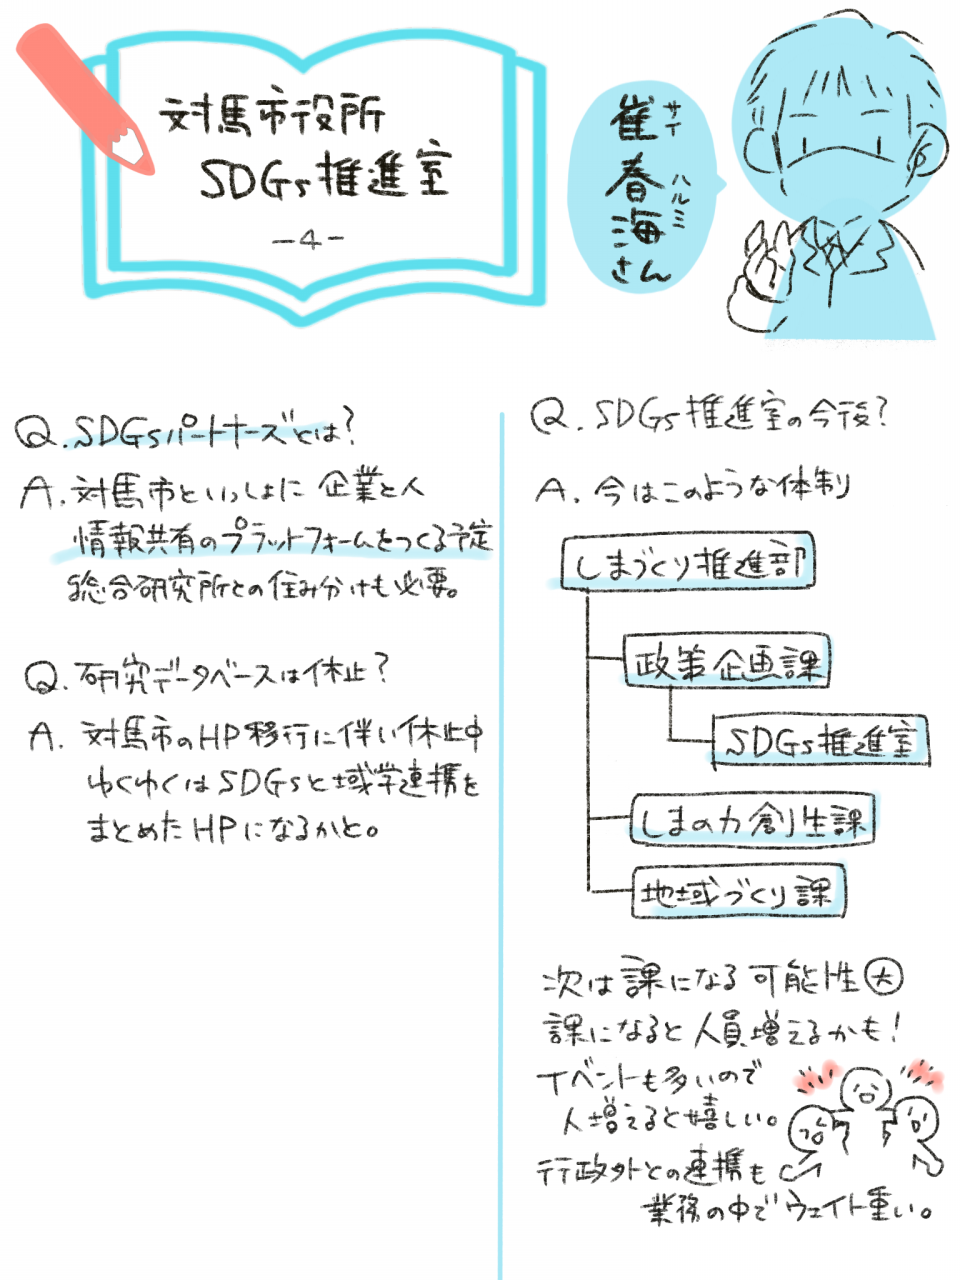 対馬市役所
SDGs推進室
-4-
崔春海さん
サイ
ハルミ
Q. SDGsパートナーズとは?
A. 対馬市といっしょに 企業と人
情報共有のプラットフォームをつくる予定
総合研究所との住み分けも必要。
Q. 研究データベースは休止?
A. 対馬市のHP移行に伴い休止中
ゆくゆくはSDGsと域学連携を
まとめたHPになるかと。
Q. SDGs推進室の今後?
A. 今はこのような体制
しまづくり推進部
政策企画課
SDGs推進室
しまの力創生課
地域づくり課
次は課になる可能性大
課になると人員増えるかも!
イベントも多いので
人増えると嬉しい。
行政外との連携も
業務の中でウェイト重い。